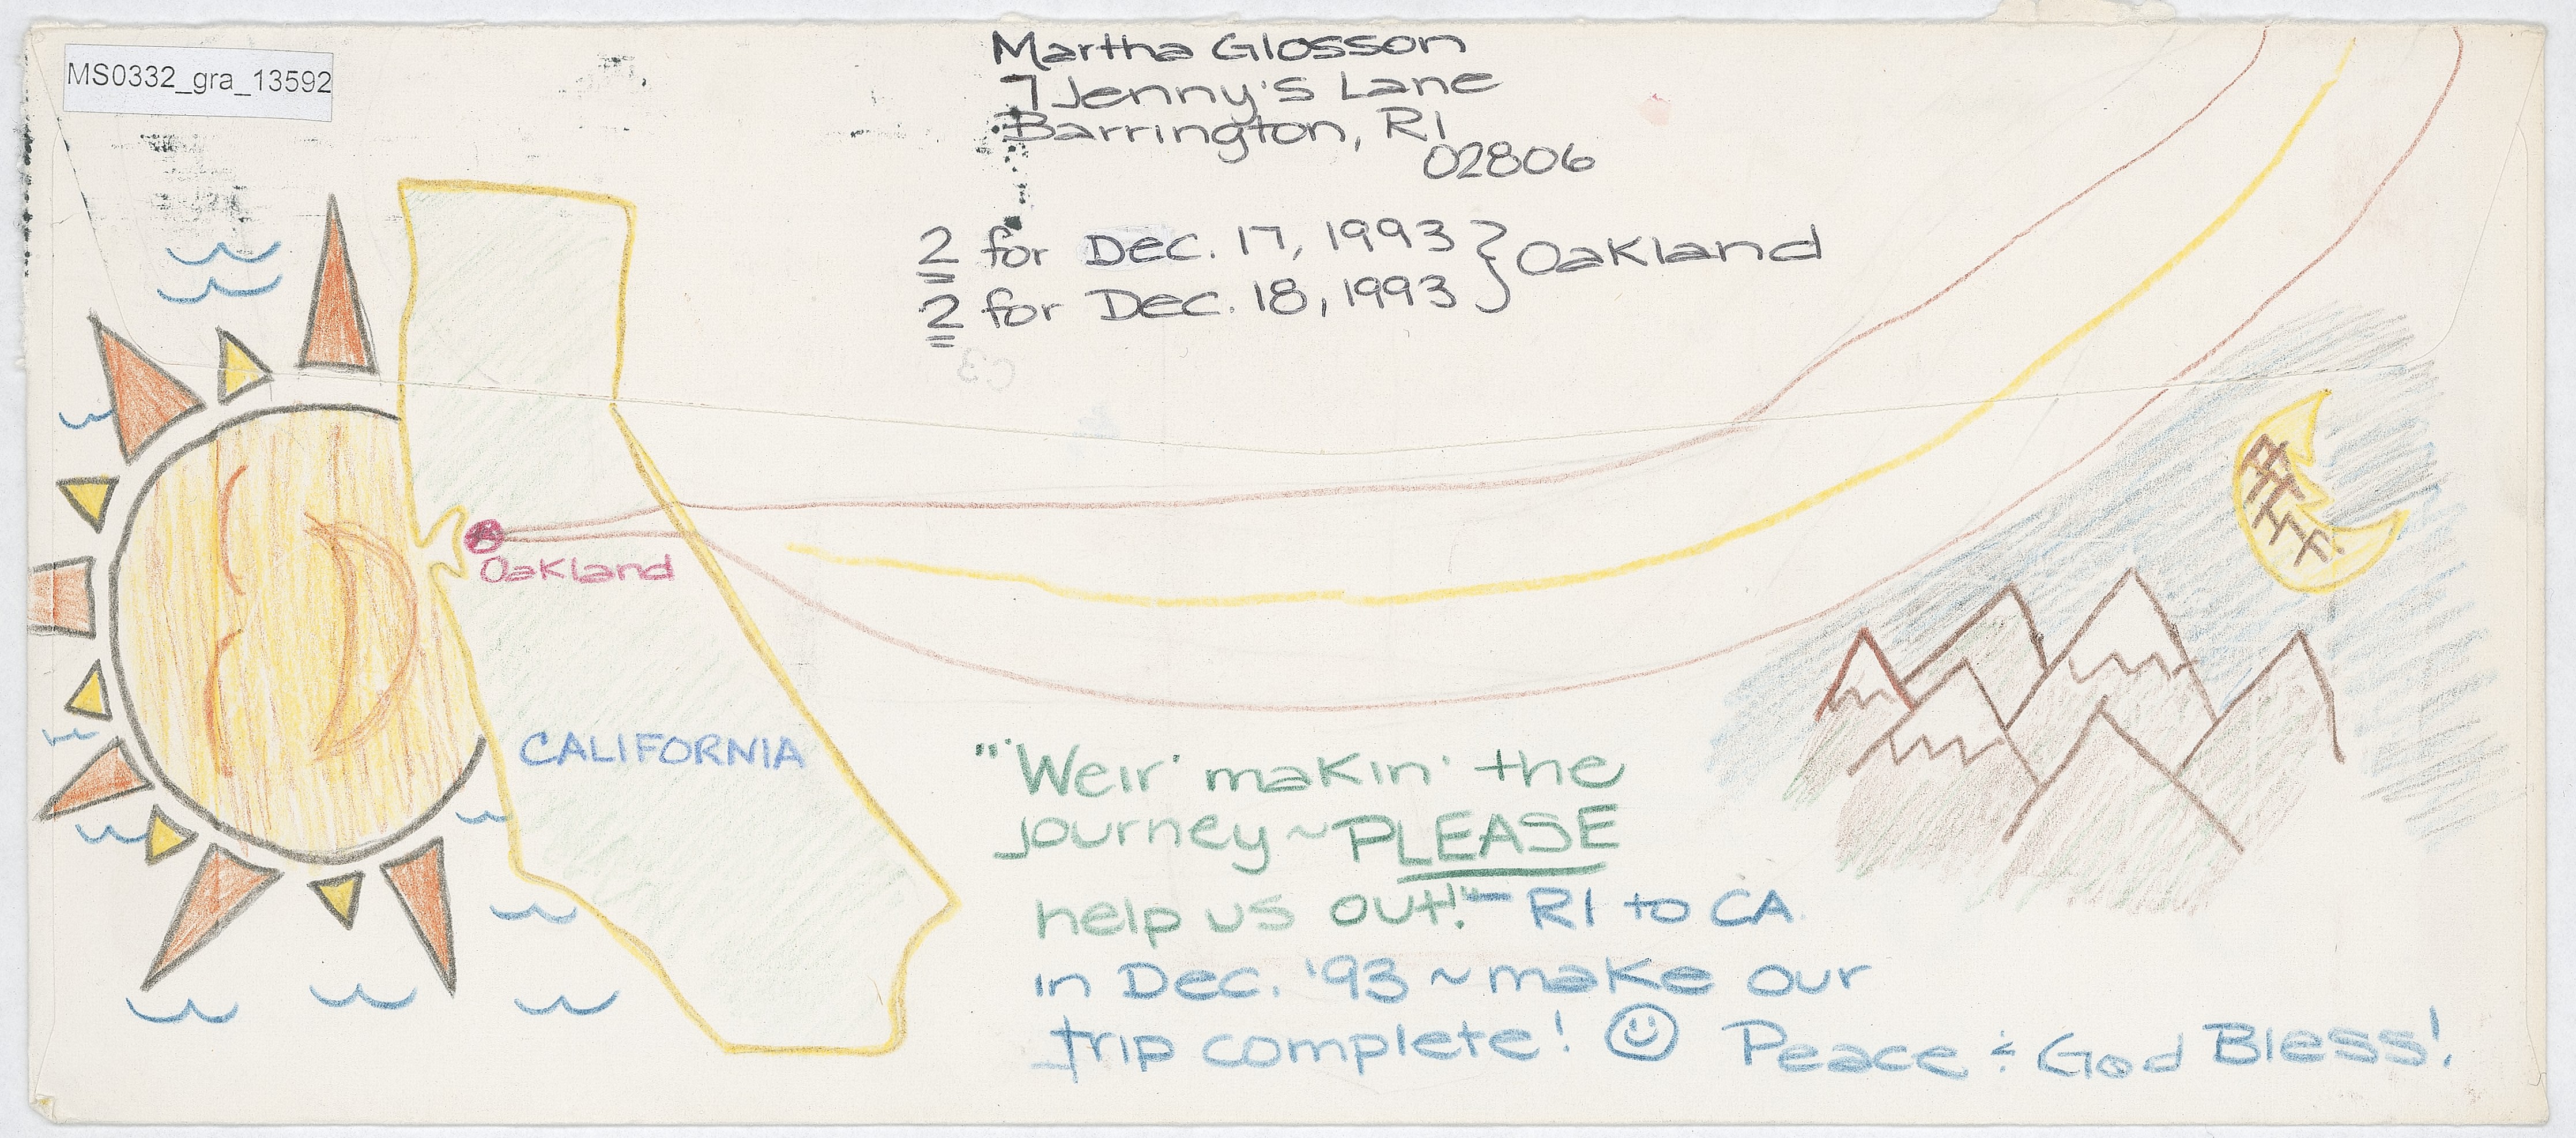 MS0332_gra_13592
Martha Glosson
7 Jenny's Lane
Barrington, RI
02806
2 for Dec. 17, 1993 } Oakland
2 for Dec. 18, 1993
Oakland
CALIFORNIA
"'Weir' makin' the
journey ~ PLEASE
help us out!" - RI to CA
in Dec. '93 ~ make our
trip complete! Peace & God Bless!